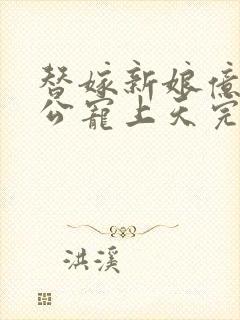 替嫁新娘億
公寵上天完
洪溪